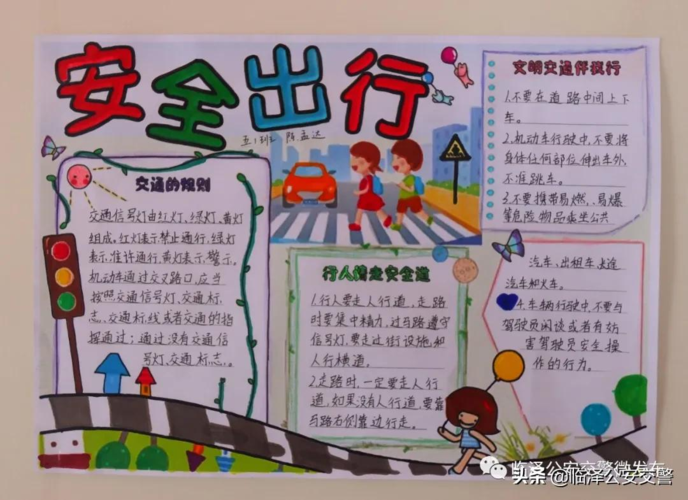 安全出行
五1班 陈孟达
交通的规则
交通信号灯由红灯、绿灯、黄灯
组成。红灯表示禁止通行,绿灯
表示准许通行,黄灯表示警示。
机动车通过交叉路口,应当
按照交通信号灯、交通标
志、交通标线或者交通的指
挥通过;通过没有交通信
号灯、交通标志、
行人请走安全道
1.行人要走人行道,走路
时要集中精力,过马路遵守
信号灯,要走过街设施,和
人行横道。
2.走路时,一定要走人行
道,如果没有人行道,要靠
马路右侧靠边行走。
文明交通伴我行
1.不要在道路中间上下
车。
2.机动车行驶中,不要将
身体任何部位伸出车外,
不准跳车。
3.不要携带易燃、易爆
等危险物品乘坐公共
汽车、出租车、长途
汽车和火车。
4.车辆行驶中,不要与
驾驶员闲谈或者有妨
害驾驶员安全操
作的行为。
临泽公安交警微发布
头条@临泽公安交警